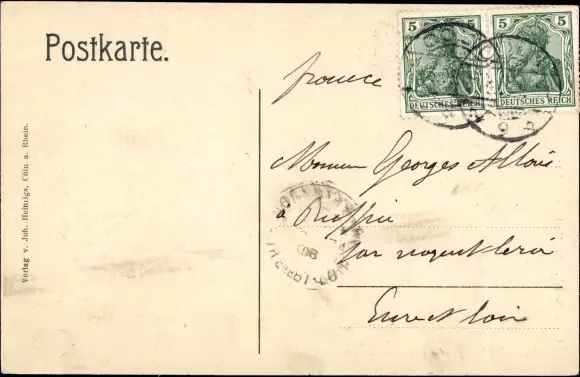 Postkarte.
5 5
DEUTSCHES REICH
5 5
DEUTSCHES REICH
france
Monsieur Georges
à
par nogent le roi
Eure et loir
Verlag v. Joh. Heimigs, Cöln a. Rhein.